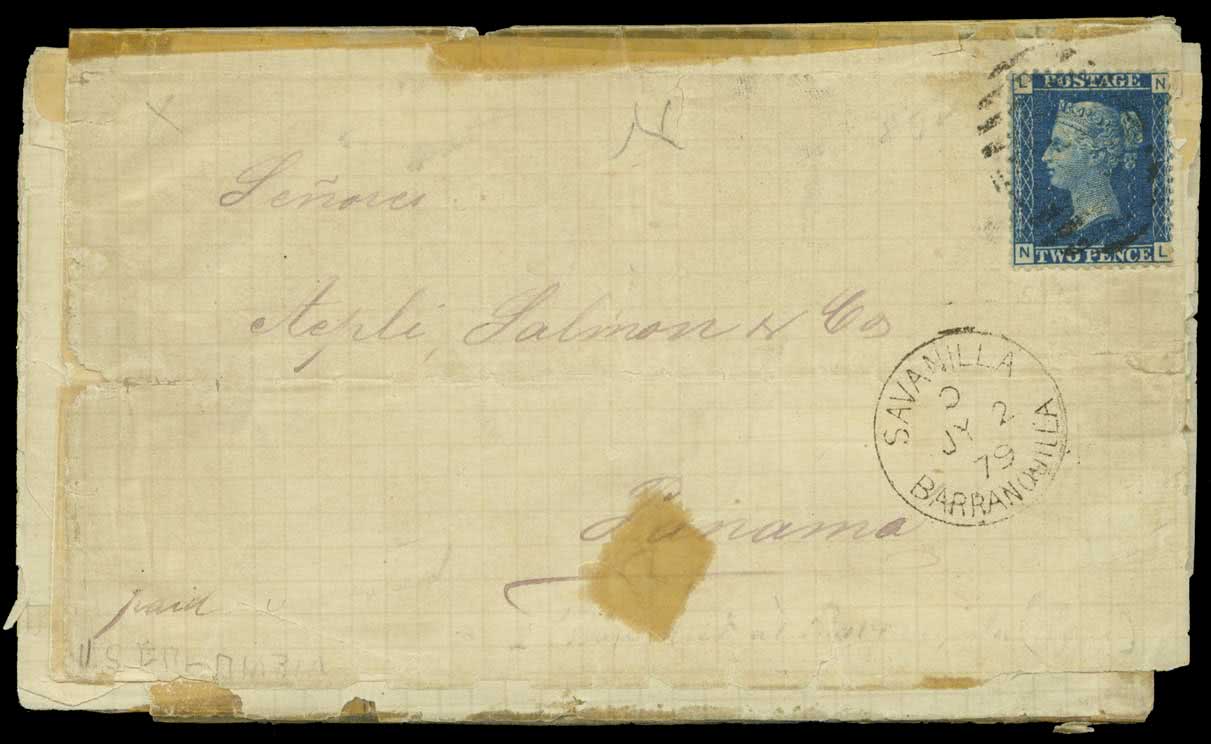 L POSTAGE N
N TWO PENCE L
Señores
Aepli, Salmon & Co
SAVANILLA
JY 2
79
BARRANQUILLA
Panama
paid